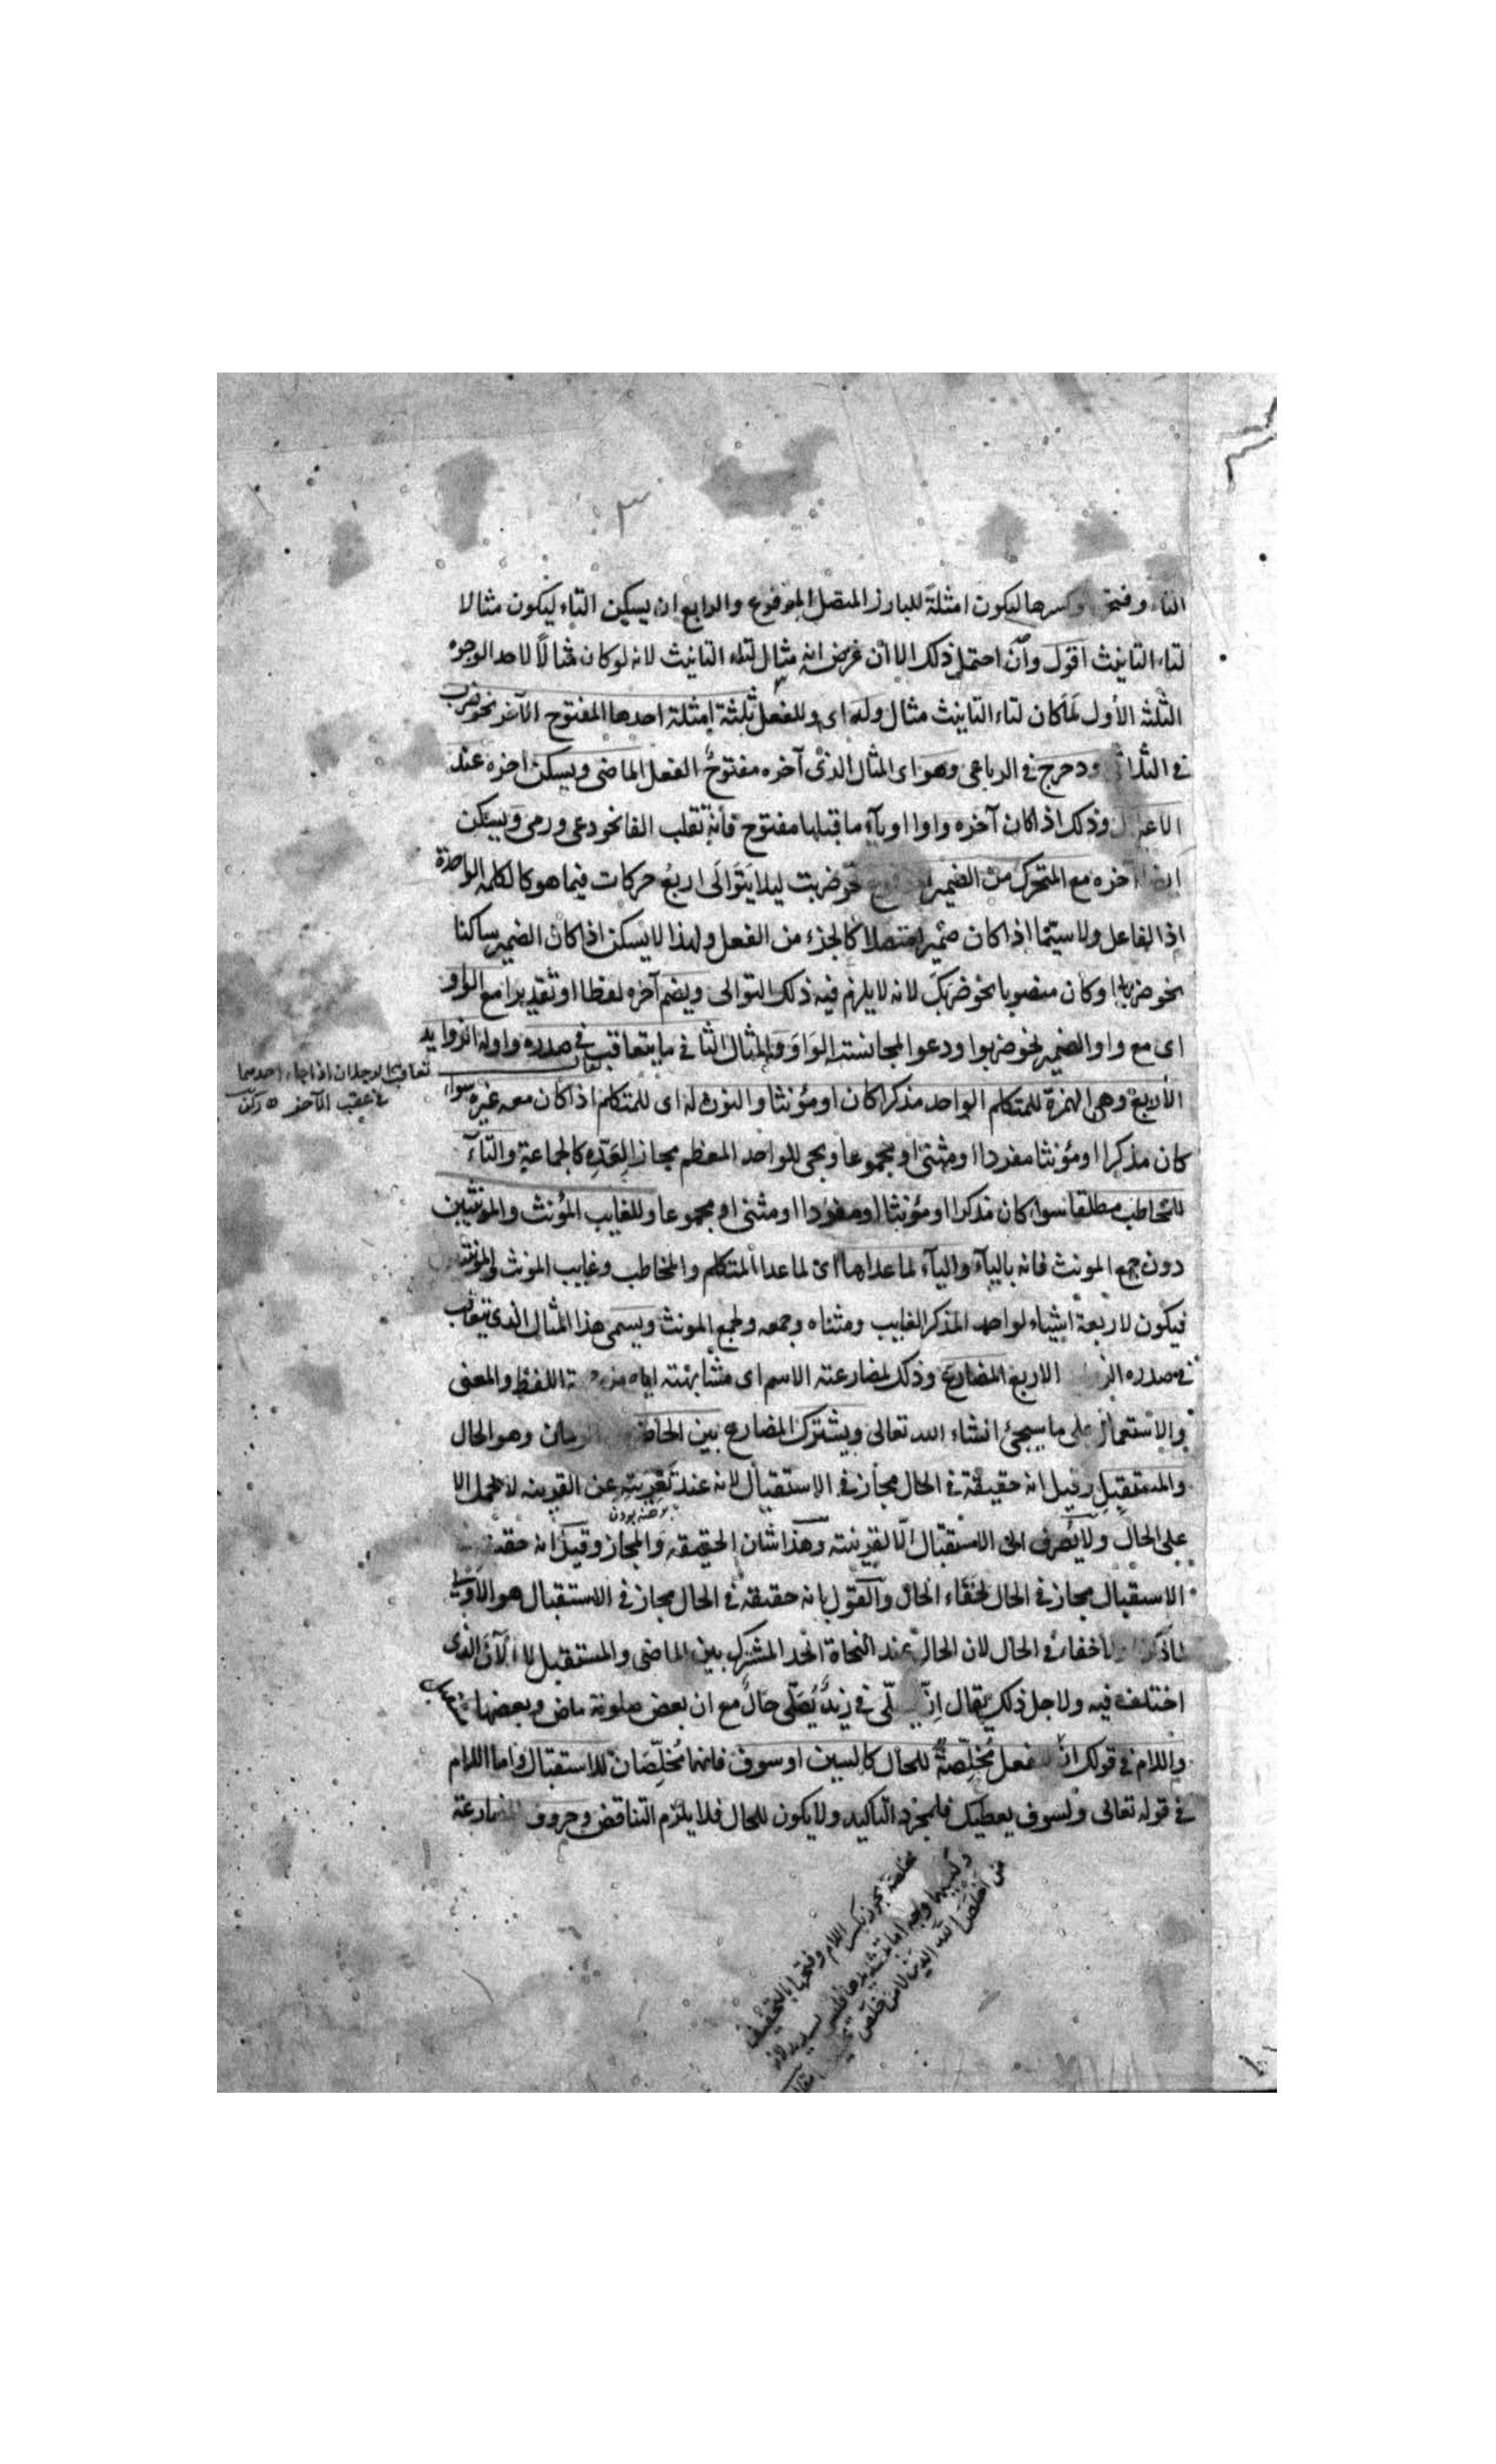 ٣
التاء وفتحها وكسرها ليكون امثلةً للبارز المتصل المرفوع والرابع ان يسكن التاء ليكون مثالا
لتاء التانيث اقول وان احتمل ذلك الا ان غرضه انه مثال لتاء التانيث لانه لو كان مثالاً لاحد الوجوه
الثلثه الأول لما كان لتاء التانيث مثال وله اى وللفعل ثلثة امثلة احدها المفتوح الآخر نحو ضرب
في الثلاثي ودحرج في الرباعى وهو اى المثال الذى آخره مفتوحٌ الفعل الماضى ويسكن اخره عند
الاعلال وذلك اذا كان آخره واوا او ياء ما قبلها مفتوح فانه تقلب الفا نحو دعى ورمى ويسكن
ايضا آخره مع المتحرك من الضمير المرفوع نحو ضربت ليلا يتوالى اربع حركات فيما هو كالكلمة الواحدة
اذ الفاعل ولا سيّما اذا كان ضميرا متصلا كالجزء من الفعل ولهذا لا يسكن اذا كان الضمير ساكنا
نحو ضربا او كان منصوبا نحو ضربك لانه لا يلزم فيه ذلك التوالى ويضم آخره لفظا او تقديرا مع الواو
اى مع واو الضمير نحو ضربوا ودعوا لمجانسته الواو والمثال الثانى ما يتعاقب في صدره واوله الزوايد
الأربع وهى الهمزة للمتكلم الواحد مذكرا كان او مؤنثا والنون له اى للمتكلم اذا كان معه غيره سواء
كان مذكرا او مؤنثا مفردا او مثنى او مجموعا ويجى للواحد المعظم مجازا لعدّه كالجماعة والتّاء
للمخاطب مطلقا سواء كان مذكرا او مؤنثا او مفردا او مثنى او مجموعا وللغايب المؤنث والمؤنثتين
دون جمع المونث فانه بالياء والياء لما عداها اى لما عدا المتكلم والمخاطب وغايب المونث والمونثتين
فيكون لاربعة اشياء لواحد المذكر الغايب ومثناه وجمعه ولجمع المونث ويسمى هذا المثال الذى يتعاقب
في صدره الاربع المضارع وذلك لمضارعته الاسم اى مشابهته اياه من جهة اللفظ والمعنى
والاستعمال على ما سيجئ انشاء الله تعالى ويشترك المضارع بين الحاضر وهو الحال
والمستقبل وقيل انه حقيقة في الحال مجاز في الاستقبال لانه عند تعريته عن القرينه لا يحمل الا
على الحال ولا يصرف الى الاستقبال الّا لقرينته وهذا شان الحقيقه والمجاز وقيل انه حقيقة في
الاستقبال مجاز في الحال لخفاء الحال والقول بانه حقيقة في الحال مجاز في الاستقبال هو الاولى
لما ذكرنا ولا خفاء في الحال لان الحال عند النحاة الحد المشترك بين الماضى والمستقبل لا الآن الذى
اختلف فيه ولاجل ذلك يقال انّ يصلّى في زيدٌ يُصَلّى حالٌ مع ان بعض صلوته ماض وبعضها
واللام في قولك انّ ليفعل مُخلِّصةٌ للحال كالسين او سوف فانهما مُخلِّصَان للاستقبال واما اللام
في قوله تعالى ولسوف يعطيك فلمجرد التاكيد ولا يكون للحال فلا يلزم التناقض وحروف المضارعة
تعاقب الرجلان اذا جاء احدهما
في عقب الآخر
مخلصة يجوز بكسر اللام وفتحها بالتخفيف